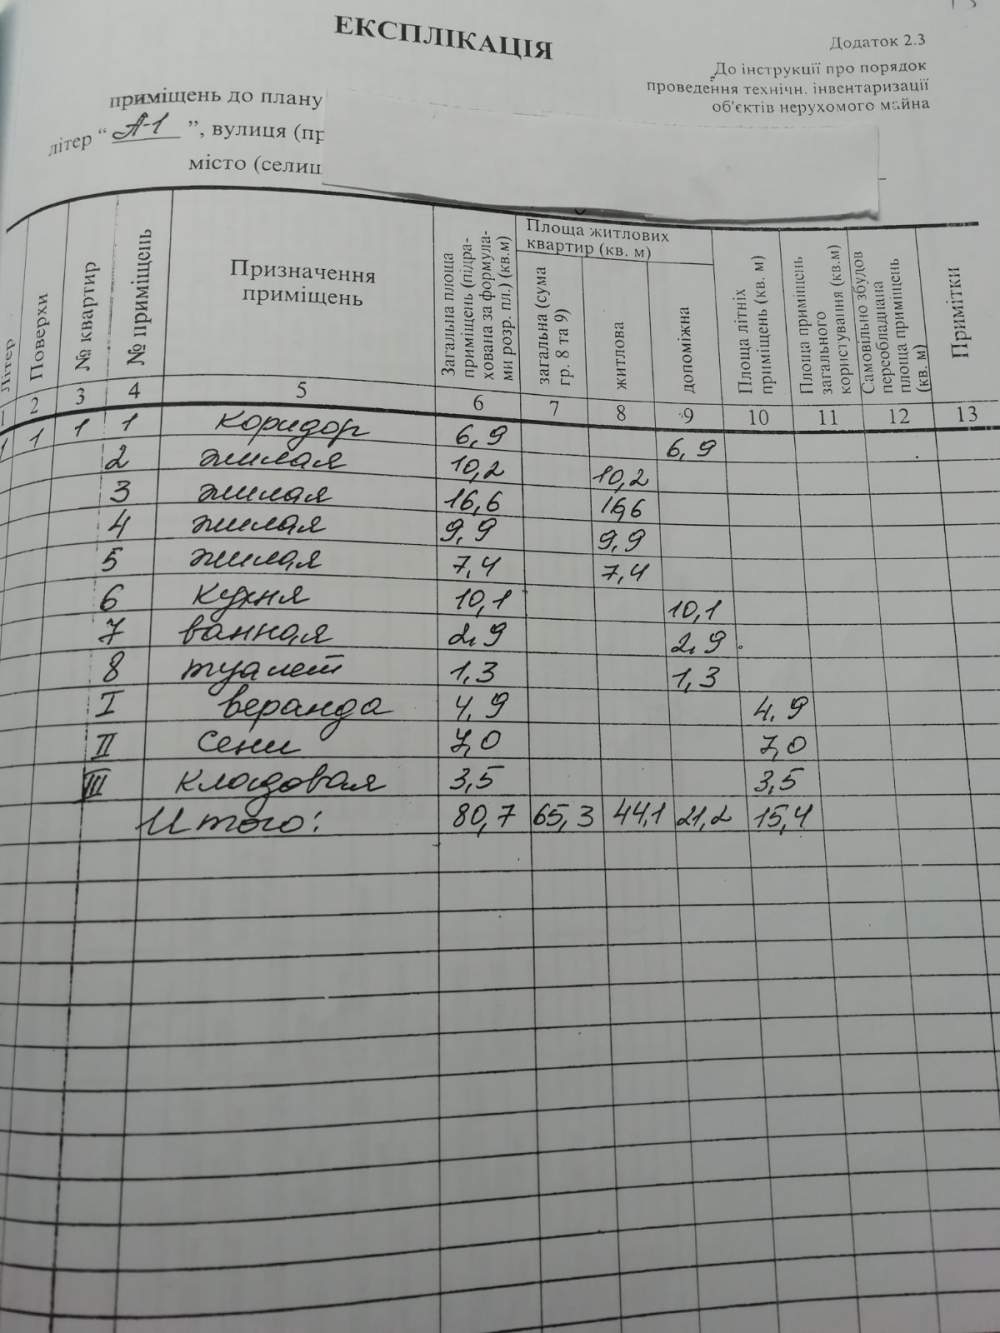 ЕКСПЛІКАЦІЯ
Додаток 2.3
До інструкції про порядок
проведення технічн. інвентаризації
об'єктів нерухомого майна
приміщень до плану
літер “ А-1 ”, вулиця (пр
місто (селищ
Літер
Поверхи
№ квартир
№ приміщень
Призначення
приміщень
Загальна площа
приміщень (підра-
хована за формула-
ми розр. пл.) (кв.м)
Площа житлових
квартир (кв. м)
загальна (сума
гр. 8 та 9)
житлова
допоміжна
Площа літніх
приміщень (кв. м)
Площа приміщень
загального
користування (кв.м)
Самовільно збудов
переобладнана
площа приміщень
(кв. м)
Примітки
1 2 3 4 5 6 7 8 9 10 11 12 13
1 1 1 коридор 6,9 6,9
2 жилая 10,2 10,2
3 жилая 16,6 16,6
4 жилая 9,9 9,9
5 жилая 7,4 7,4
6 кухня 10,1 10,1
7 ванная 2,9 2,9
8 туалет 1,3 1,3
I веранда 4,9 4,9
II сени 7,0 7,0
III кладовая 3,5 3,5
Итого: 80,7 65,3 44,1 21,2 15,4